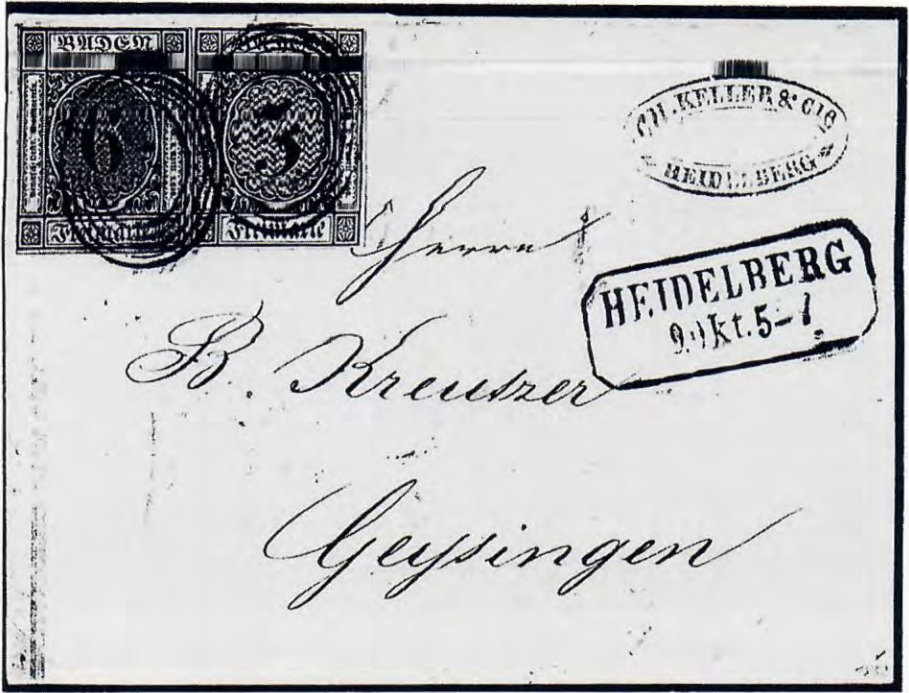 BADEN
6
Freimarke
BADEN
3
Freimarke
CH. KELLER & CIE
HEIDELBERG
HEIDELBERG
9 Okt. 5-
Herrn
B. Kreutzer
Geysingen